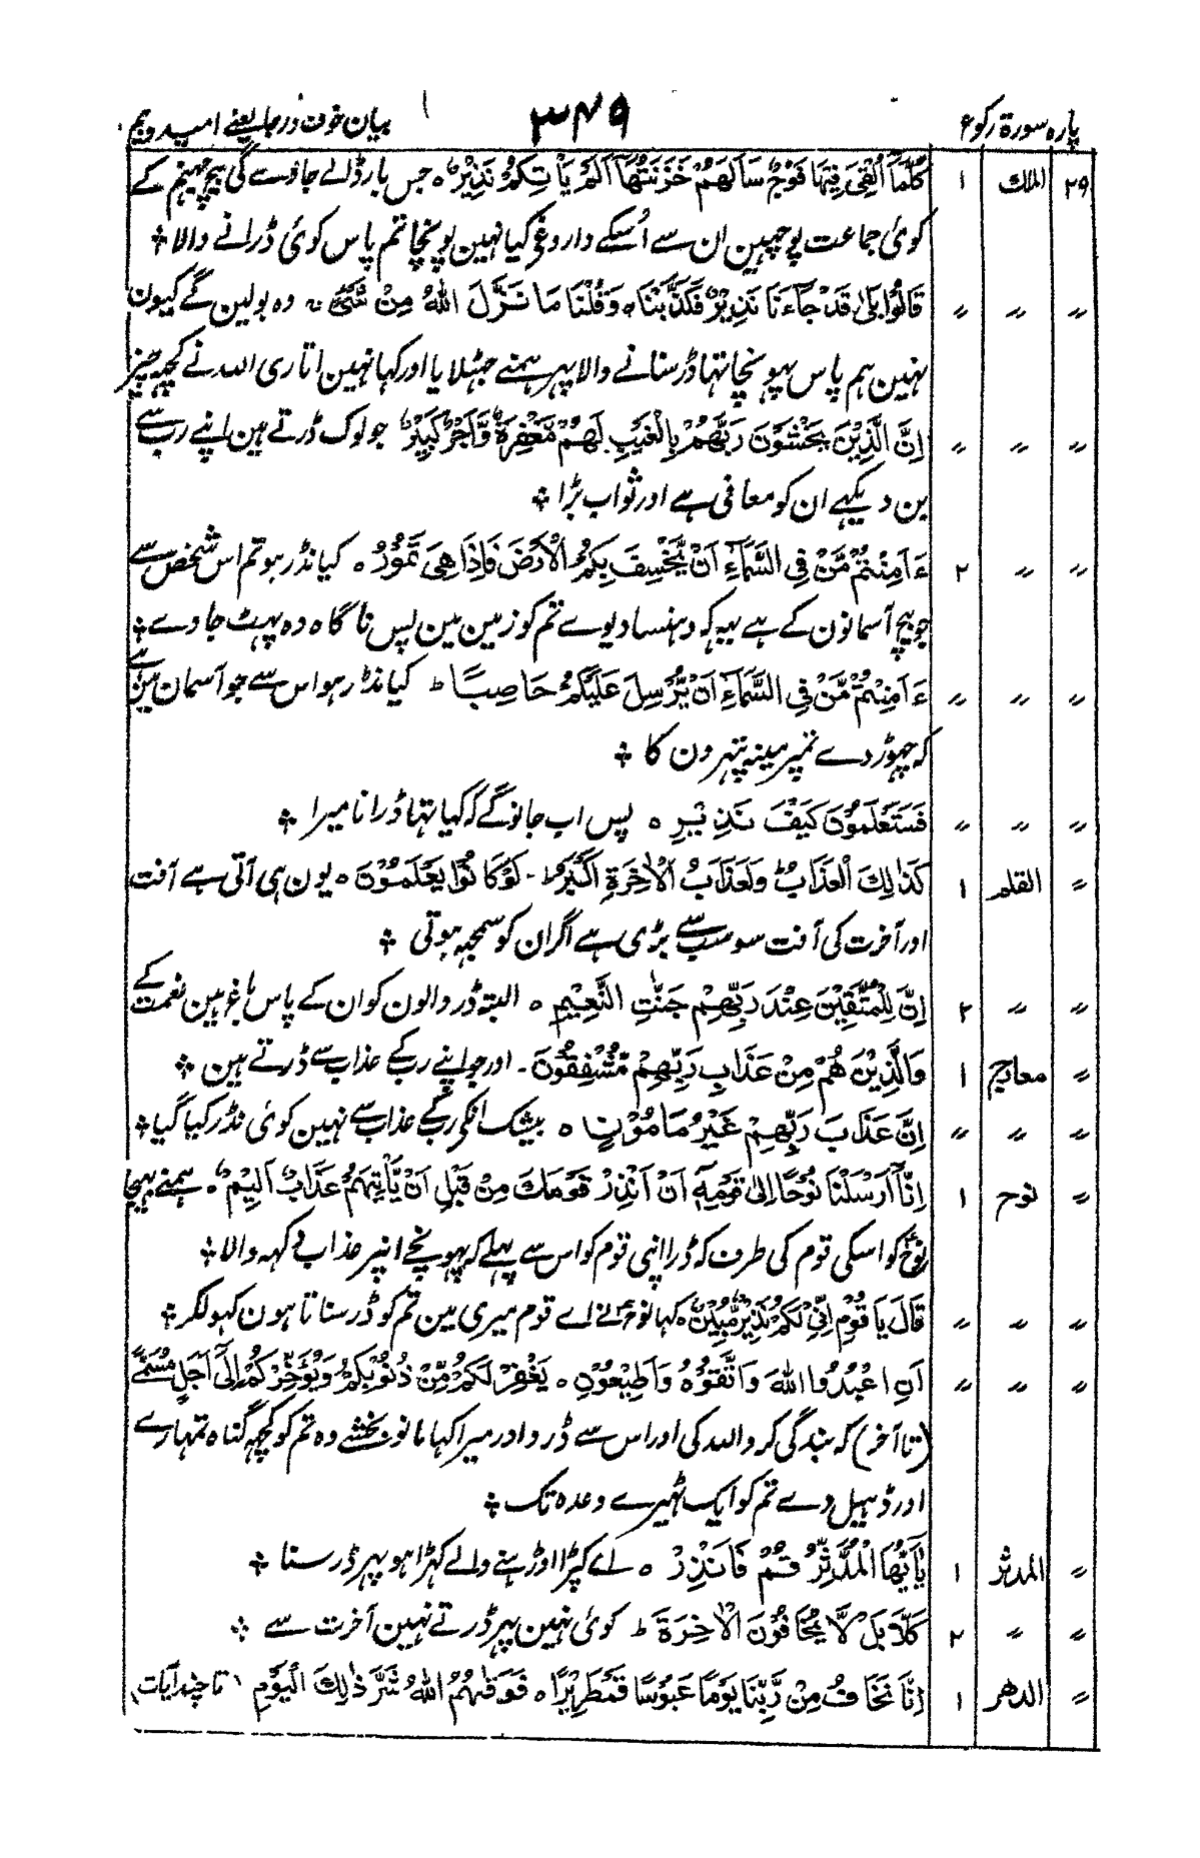 پارہ سورۃ رکوع ۳۴۹ بیان خوف ورجا یعنے امید وبیم
۲۹ الملك ۱ كُلَّمَآ اُلْقِىَ فِيْهَا فَوْجٌ سَاَلَهُمْ خَزَنَتُهَآ اَلَمْ يَاْتِكُمْ نَذِيْرٌ ہ جس بار ڈالے جاوے گی بیچ جہنم کے
کوئی جماعت پوچھین ان سے اُسکے داروغہ کیا نہین پونچا تم پاس کوئی ڈرانے والا ؞
〃 〃 〃 قَالُوْا بَلٰى قَدْ جَآءَنَا نَذِيْرٌ فَكَذَّبْنَا ہ وَقُلْنَا مَا نَزَّلَ اللهُ مِنْ شَىْءٍ ؞ وہ بولین گے کیون
نہین ہم پاس پہونچا تہا ڈر سنانے والا پہر ہمنے جہٹلایا اور کہا نہین اتاری اللہ نے کچہہ چیز
〃 〃 〃 اِنَّ الَّذِيْنَ يَخْشَوْنَ رَبَّهُمْ بِالْغَيْبِ لَهُمْ مَّغْفِرَةٌ وَّاَجْرٌ كَبِيْرٌ جو لوک ڈرتے ہین اپنے رب سے
بن دیکہے ان کو معافی ہے اور ثواب بڑا ؞
〃 〃 ۲ ءَاَمِنْتُمْ مَّنْ فِى السَّمَآءِ اَنْ يَّخْسِفَ بِكُمُ الْاَرْضَ فَاِذَا هِىَ تَمُوْرُ ہ کیا نڈر ہو تم اس شخص سے
جو بیچ آسمانون کے ہے یہہ کہ دہنسا دیوے تم کو زمین مین پس ناگاہ وہ پہٹ جاوے ؞
〃 〃 〃 ءَاَمِنْتُمْ مَّنْ فِى السَّمَآءِ اَنْ يُّرْسِلَ عَلَيْكُمْ حَاصِبًا ط کیا نڈر ہو اس سے جو آسمان مین ہے
کہ چہوڑ دے تمپر مینہ پتہرون کا ؞
〃 〃 〃 فَسَتَعْلَمُوْنَ كَيْفَ نَذِيْرِ ہ پس اب جانوگے کہ کیا تہا ڈرانا میرا ؞
〃 القلم ۱ كَذٰلِكَ الْعَذَابُ ط وَلَعَذَابُ الْاٰخِرَةِ اَكْبَرُ ط ۔ لَوْ كَانُوْا يَعْلَمُوْنَ ہ یون ہی آتی ہے آفت
اور آخرت کی آفت سو سب سے بڑی ہے اگر ان کو سمجہہ ہوتی ؞
〃 〃 ۲ اِنَّ لِلْمُتَّقِيْنَ عِنْدَ رَبِّهِمْ جَنّٰتِ النَّعِيْمِ ہ البتہ ڈر والون کو ان کے پاس باغ ہین نعمت کے
〃 معارج ۱ وَالَّذِيْنَ هُمْ مِنْ عَذَابِ رَبِّهِمْ مُّشْفِقُوْنَ ۔ اور جو اپنے رب کے عذاب سے ڈرتے ہین ؞
〃 〃 〃 اِنَّ عَذَابَ رَبِّهِمْ غَيْرُ مَامُوْنٍ ہ بیشک انکی رب کے عذاب سے نہین کوئی نڈر کیا گیا ؞
〃 نوح ۱ اِنَّآ اَرْسَلْنَا نُوْحًا اِلٰى قَوْمِهٖٓ اَنْ اَنْذِرْ قَوْمَكَ مِنْ قَبْلِ اَنْ يَّاْتِيَهُمْ عَذَابٌ اَلِيْمٌ ہ ہمنے بہیجا
نوح کو اسکی قوم کی طرف کہ ڈرا اپنی قوم کو اس سے پہلے کہ پہونچے انپر عذاب دکہہ والا ؞
〃 〃 〃 قَالَ يَا قَوْمِ اِنِّىْ لَكُمْ نَذِيْرٌ مُّبِيْنٌ ہ کہا نوح نے اے قوم میری مین تم کو ڈر سناتا ہون کہولکر ؞
〃 〃 〃 اَنِ اعْبُدُوا اللهَ وَاتَّقُوْهُ وَاَطِيْعُوْنِ ہ يَغْفِرْ لَكُمْ مِّنْ ذُنُوْبِكُمْ وَيُؤَخِّرْكُمْ اِلٰٓى اَجَلٍ مُّسَمًّى
(تا آخر) کہ بندگی کرو اللہ کی اور اس سے ڈرو اور میرا کہا مانو بخشے وہ تم کو کچہہ گناہ تمہارے
اور ڈہیل دے تم کو ایک ٹہیرے وعدہ تک ؞
〃 المدثر ۱ يٰٓاَيُّهَا الْمُدَّثِّرُ قُمْ فَاَنْذِرْ ہ اے کپڑا اوڑہنے والے کہڑا ہو پہر ڈر سنا ؞
〃 〃 ۲ كَلَّا بَلْ لَّا يَخَافُوْنَ الْاٰخِرَةَ ط کوئی نہین پر ڈرتے نہین آخرت سے ؞
〃 الدهر ۱ اِنَّا نَخَافُ مِنْ رَّبِّنَا يَوْمًا عَبُوْسًا قَمْطَرِيْرًا ہ فَوَقٰهُمُ اللهُ شَرَّ ذٰلِكَ الْيَوْمِ (تا چند آیات)